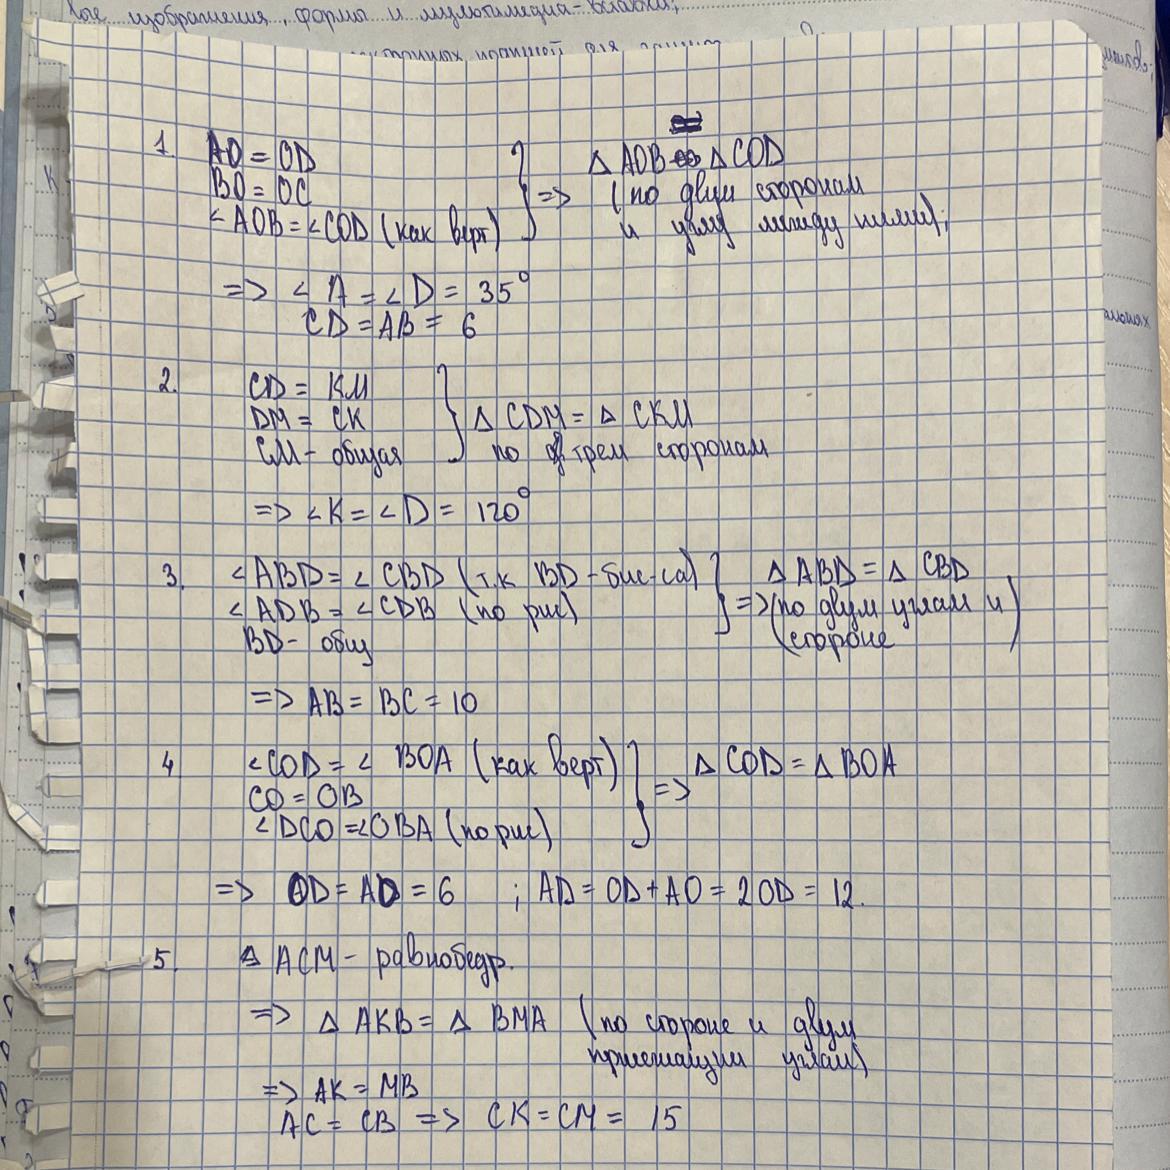 кое изображения, формы и мультимедиа-вставки;
1. AO = OD
BO = OC
∠AOB = ∠COD (как верт)
=> △ AOB = △ COD
(по двум сторонам
и углу между ними);
=> ∠ A = ∠ D = 35°
CD = AB = 6
2. CD = KM
DM = CK
CM - общая
△ CDM = △ CKM
по трем сторонам
=> ∠K = ∠D = 120°
3. ∠ABD = ∠CBD (т.к BD - бис-са)
∠ADB = ∠CDB (по рис)
BD - общ
=> △ ABD = △ CBD
(по двум углам и
стороне)
=> AB = BC = 10
4 ∠COD = ∠ BOA (как верт)
CO = OB
∠DCO = ∠OBA (по рис)
=> △ COD = △ BOA
=> OD = AO = 6 ; AD = OD + AO = 2OD = 12.
5. △ ACM - равнобедр.
=> △ AKB = △ BMA (по стороне и двум
прилежащим углам)
=> AK = MB
AC = CB => CK = CM = 15